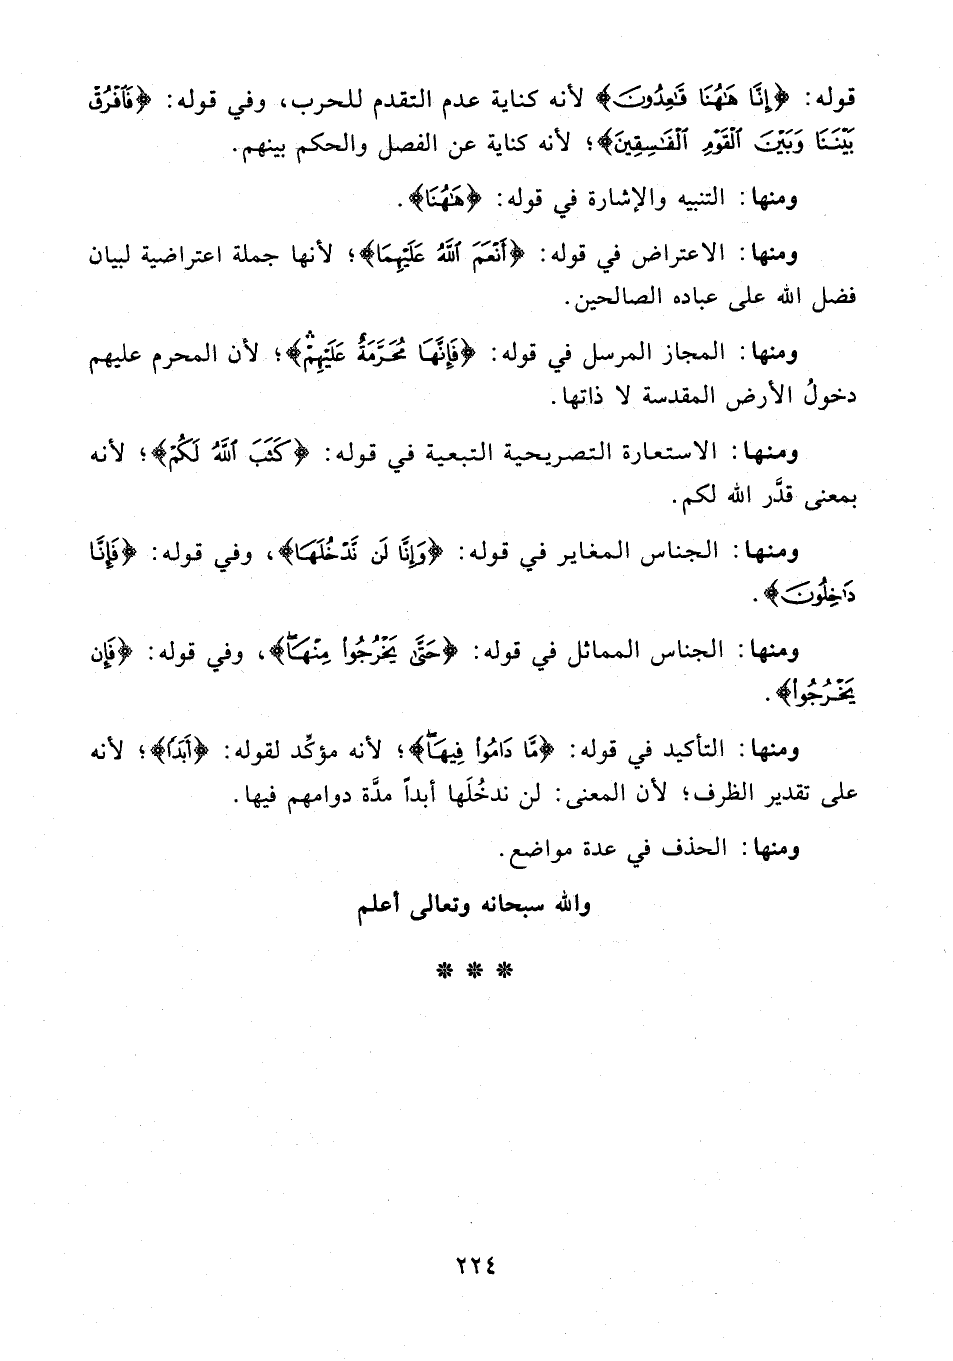 قوله: ﴿إِنَّا هَٰهُنَا قَٰعِدُونَ﴾ لأنه كناية عدم التقدم للحرب، وفي قوله: ﴿فَٱفْرُقْ
بَيْنَنَا وَبَيْنَ ٱلْقَوْمِ ٱلْفَٰسِقِينَ﴾؛ لأنه كناية عن الفصل والحكم بينهم.
ومنها: التنبيه والإشارة في قوله: ﴿هَٰهُنَا﴾.
ومنها: الاعتراض في قوله: ﴿أَنْعَمَ ٱللَّهُ عَلَيْهِمَا﴾؛ لأنها جملة اعتراضية لبيان
فضل الله على عباده الصالحين.
ومنها: المجاز المرسل في قوله: ﴿فَإِنَّهَا مُحَرَّمَةٌ عَلَيْهِمْ ۛ﴾؛ لأن المحرم عليهم
دخولُ الأرض المقدسة لا ذاتها.
ومنها: الاستعارة التصريحية التبعية في قوله: ﴿كَتَبَ ٱللَّهُ لَكُمْ﴾؛ لأنه
بمعنى قدَّر الله لكم.
ومنها: الجناس المغاير في قوله: ﴿وَإِنَّا لَن نَّدْخُلَهَا﴾، وفي قوله: ﴿فَإِنَّا
دَٰخِلُونَ﴾.
ومنها: الجناس المماثل في قوله: ﴿حَتَّىٰ يَخْرُجُوا۟ مِنْهَا ۖ﴾، وفي قوله: ﴿فَإِن
يَخْرُجُوا۟﴾.
ومنها: التأكيد في قوله: ﴿مَّا دَامُوا۟ فِيهَا ۖ﴾؛ لأنه مؤكِّد لقوله: ﴿أَبَدًا﴾؛ لأنه
على تقدير الظرف؛ لأن المعنى: لن ندخُلَها أبداً مدَّة دوامهم فيها.
ومنها: الحذف في عدة مواضع.
والله سبحانه وتعالى أعلم
* * *
٢٢٤